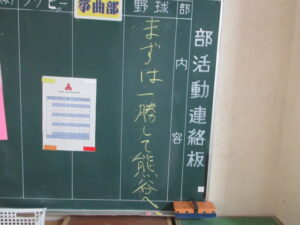 部活動連絡板
内容
野球部
まずは一勝して熊谷へ
箏曲部
ラグビー